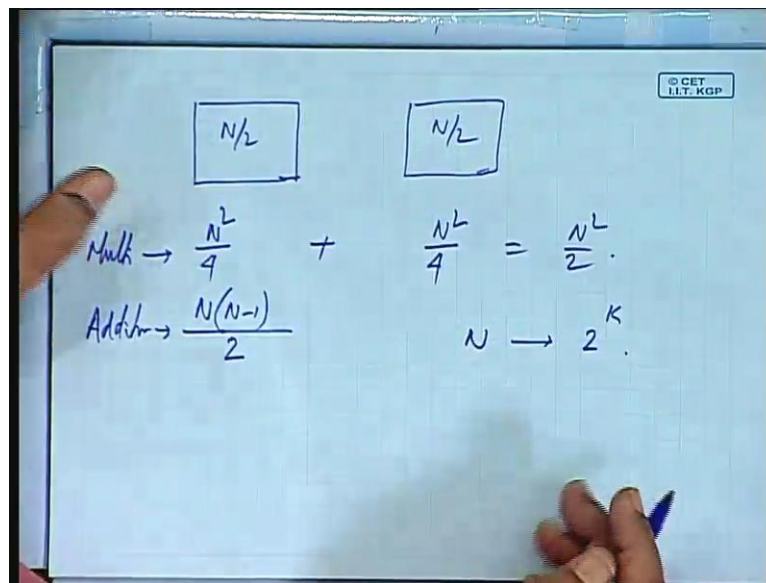 © CET
I.I.T. KGP
N/2 N/2
Mult → N²/4 + N²/4 = N²/2.
Addition → N(N-1)/2
N → 2^K.